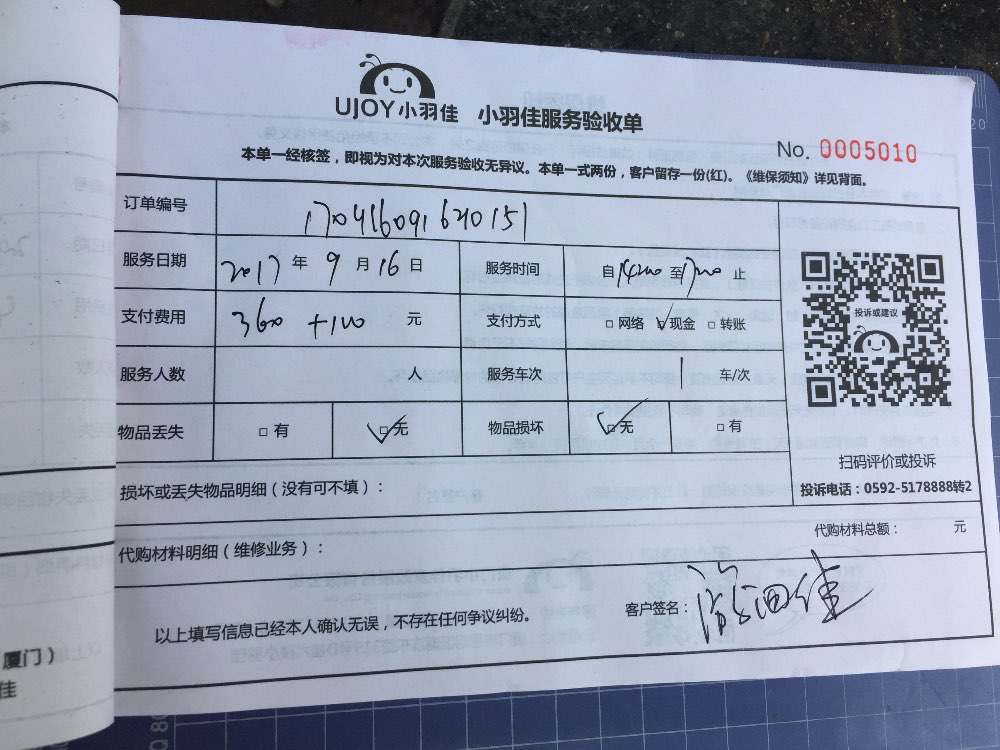 UJOY小羽佳 小羽佳服务验收单
No. 0005010
本单一经核签，即视为对本次服务验收无异议。本单一式两份，客户留存一份(红)。《维保须知》详见背面。
订单编号
服务日期 2017 年 9 月 16 日 服务时间 自1400 至1700 止
支付费用 360 +100 元 支付方式 □ 网络 □ 现金 □ 转账
服务人数 人 服务车次 车/次
物品丢失 □ 有 □ 无 物品损坏 □ 无 □ 有
投诉或建议
扫码评价或投诉
投诉电话：0592-5178888转2
损坏或丢失物品明细（没有可不填）：
代购材料明细（维修业务）： 代购材料总额： 元
以上填写信息已经本人确认无误，不存在任何争议纠纷。 客户签名：
厦门）
佳